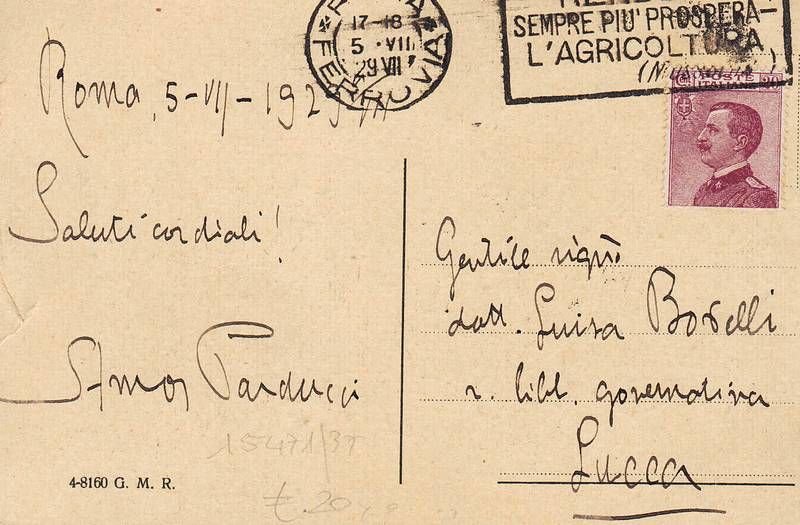 17-18
5 · VII
29 VII
FERROVIA
SEMPRE PIU' PROSPERA-
L'AGRICOLTURA
POSTE
ITALIANE
Roma, 5-VII-1929 VII
Saluti cordiali!
Amos Parducci
15471/37
£.20
4-8160 G. M. R.
Gentile sigra
dott. Luisa Borelli
r. bibl. governativa
Lucca